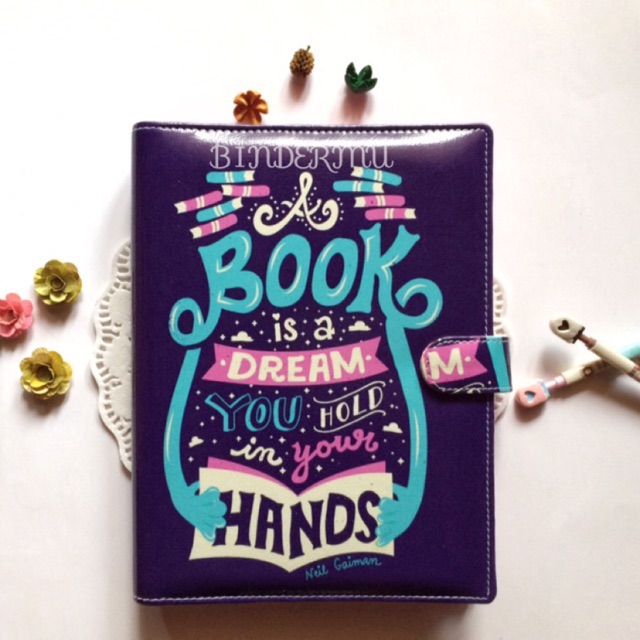 BINDERMU
A
BOOK
is a
DREAM
M
YOU HOLD
in your
HANDS
Neil Gaiman